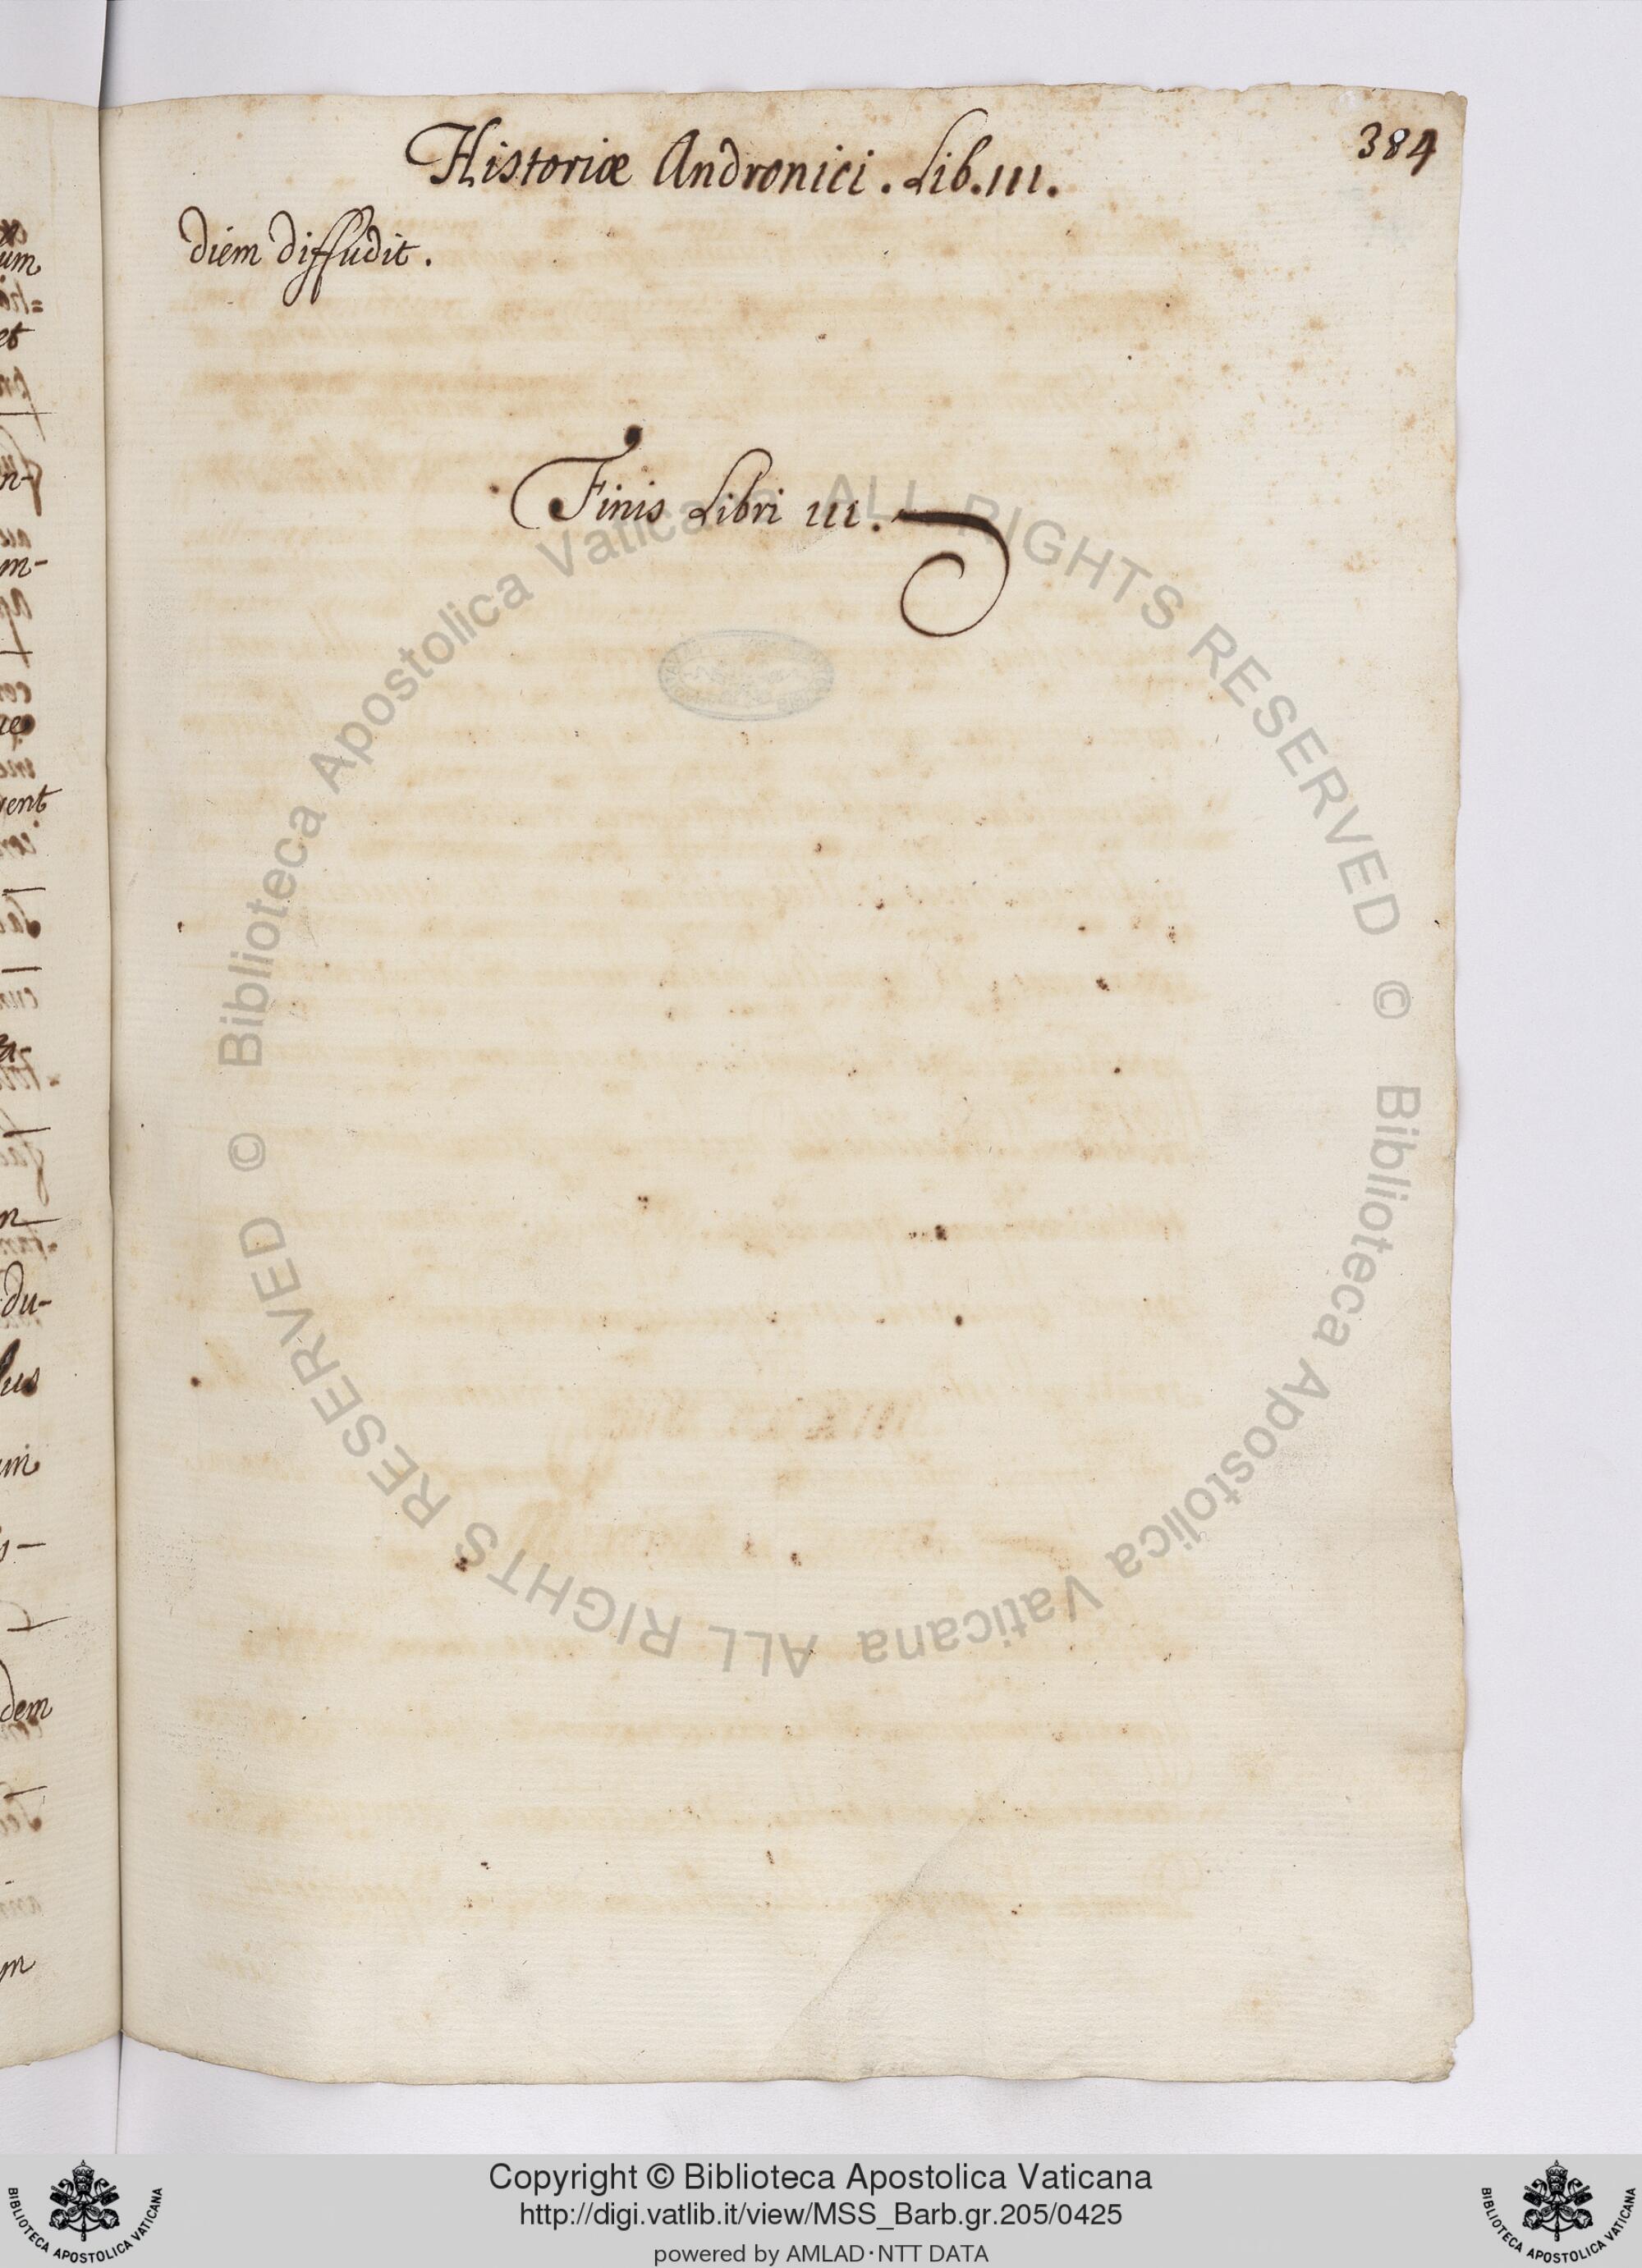 384
Historiæ Andronici. Lib. III.
diem diffudit.
Finis Libri III.
© Biblioteca Apostolica Vaticana ALL RIGHTS RESERVED
© Biblioteca Apostolica Vaticana ALL RIGHTS RESERVED
um
et
m-
vent
du-
lus
dem
m
Copyright © Biblioteca Apostolica Vaticana
http://digi.vatlib.it/view/MSS_Barb.gr.205/0425
powered by AMLAD·NTT DATA
BIBLIOTECA APOSTOLICA VATICANA
BIBLIOTECA APOSTOLICA VATICANA